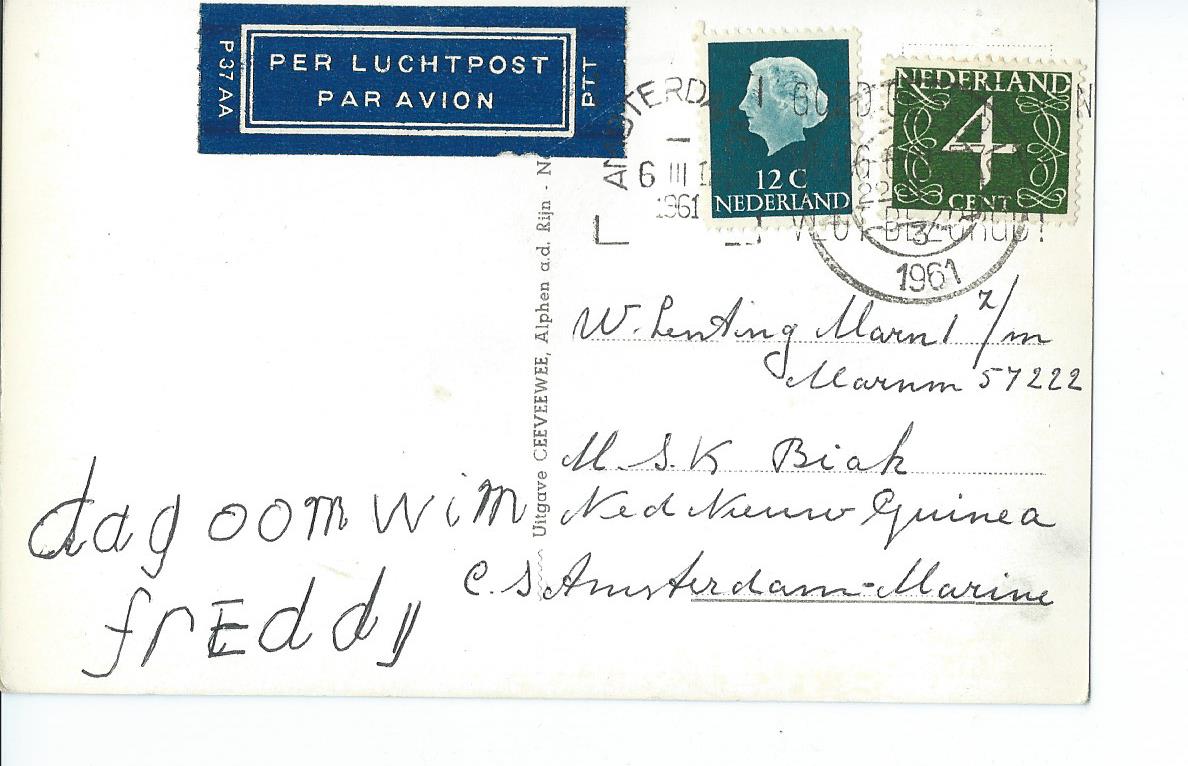 PER LUCHTPOST
PAR AVION
P 37 AA
PTT
AMSTERDAM
6 III
1961
12 C
NEDERLAND
NEDERLAND
4
CENT
1961
W. Lenting Marn 1 z/m
Marnm 57222
M S. K Biak
Ned Nieuw Guinea
C. S Amsterdam-Marine
Uitgave CEEVEEWEE, Alphen a.d. Rijn - N
dag oom wim
frEddy